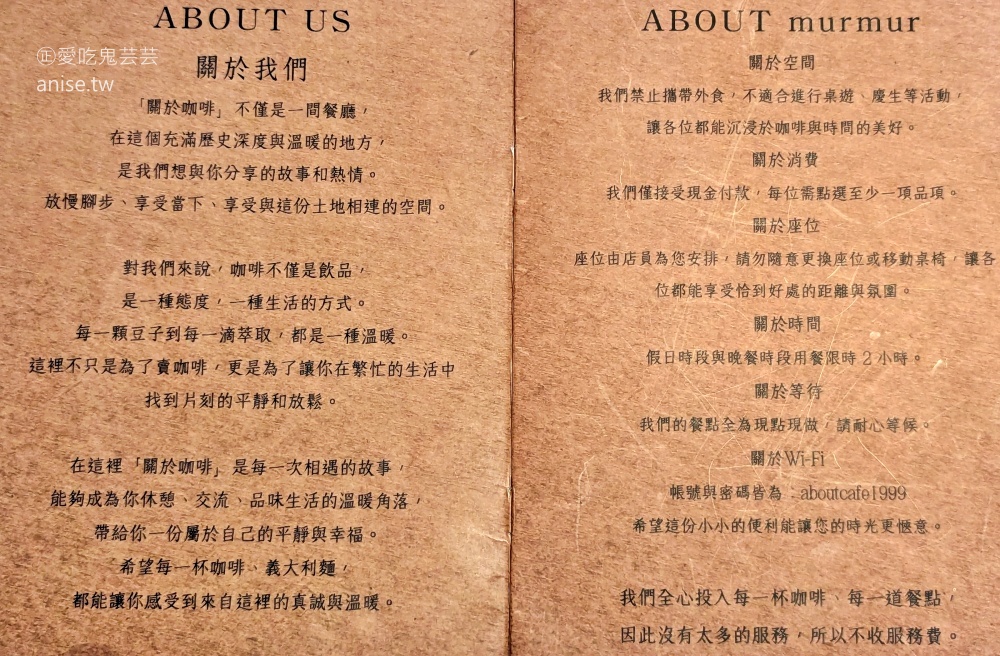 ABOUT US
㊣愛吃鬼芸芸
anise.tw
關於我們
「關於咖啡」不僅是一間餐廳，
在這個充滿歷史深度與溫暖的地方，
是我們想與你分享的故事和熱情。
放慢腳步、享受當下、享受與這份土地相連的空間。
對我們來說，咖啡不僅是飲品，
是一種態度，一種生活的方式。
每一顆豆子到每一滴萃取，都是一種溫暖。
這裡不只是為了賣咖啡，更是為了讓你在繁忙的生活中
找到片刻的平靜和放鬆。
在這裡「關於咖啡」是每一次相遇的故事，
能夠成為你休憩、交流、品味生活的溫暖角落，
帶給你一份屬於自己的平靜與幸福。
希望每一杯咖啡、義大利麵，
都能讓你感受到來自這裡的真誠與溫暖。
ABOUT murmur
關於空間
我們禁止攜帶外食，不適合進行桌遊、慶生等活動，
讓各位都能沉浸於咖啡與時間的美好。
關於消費
我們僅接受現金付款，每位需點選至少一項品項。
關於座位
座位由店員為您安排，請勿隨意更換座位或移動桌椅，讓各
位都能享受恰到好處的距離與氛圍。
關於時間
假日時段與晚餐時段用餐限時 2 小時。
關於等待
我們的餐點全為現點現做，請耐心等候。
關於Wi-Fi
帳號與密碼皆為：aboutcafe1999
希望這份小小的便利能讓您的時光更愜意。
我們全心投入每一杯咖啡、每一道餐點，
因此沒有太多的服務，所以不收服務費。